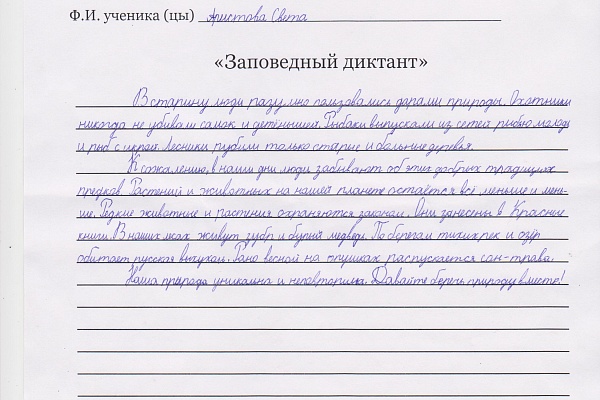 Ф.И. ученика (цы) Аристова Света
«Заповедный диктант»
В старину люди разумно пользовались дарами природы. Охотники
никогда не убивали самок и детёнышей. Рыбаки выпускали из сетей рыбью молодь
и рыб с икрой. Лесники рубили только старые и больные деревья.
К сожалению, в наши дни люди забывают об этих добрых традициях
предков. Растений и животных на нашей планете остаётся всё меньше и мень-
ше. Редкие животные и растения охраняются законом. Они занесены в Красные
книги. В наших лесах живут зубр и бурый медведь. По берегам тихих рек и озёр
обитает русская выхухоль. Рано весной на опушках распускается сон-трава.
Наша природа уникальна и неповторима. Давайте беречь природу вместе!